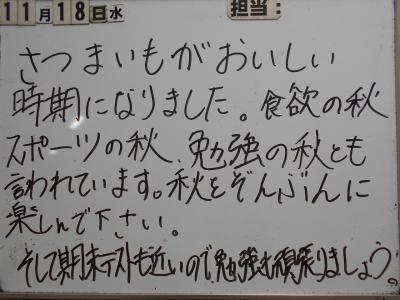 11月18日水 担当:
さつまいもがおいしい
時期になりました。食欲の秋
スポーツの秋、勉強の秋とも
言われています。秋をぞんぶんに
楽しんで下さい。
そして期末テストも近いので、勉強も頑張りましょう。